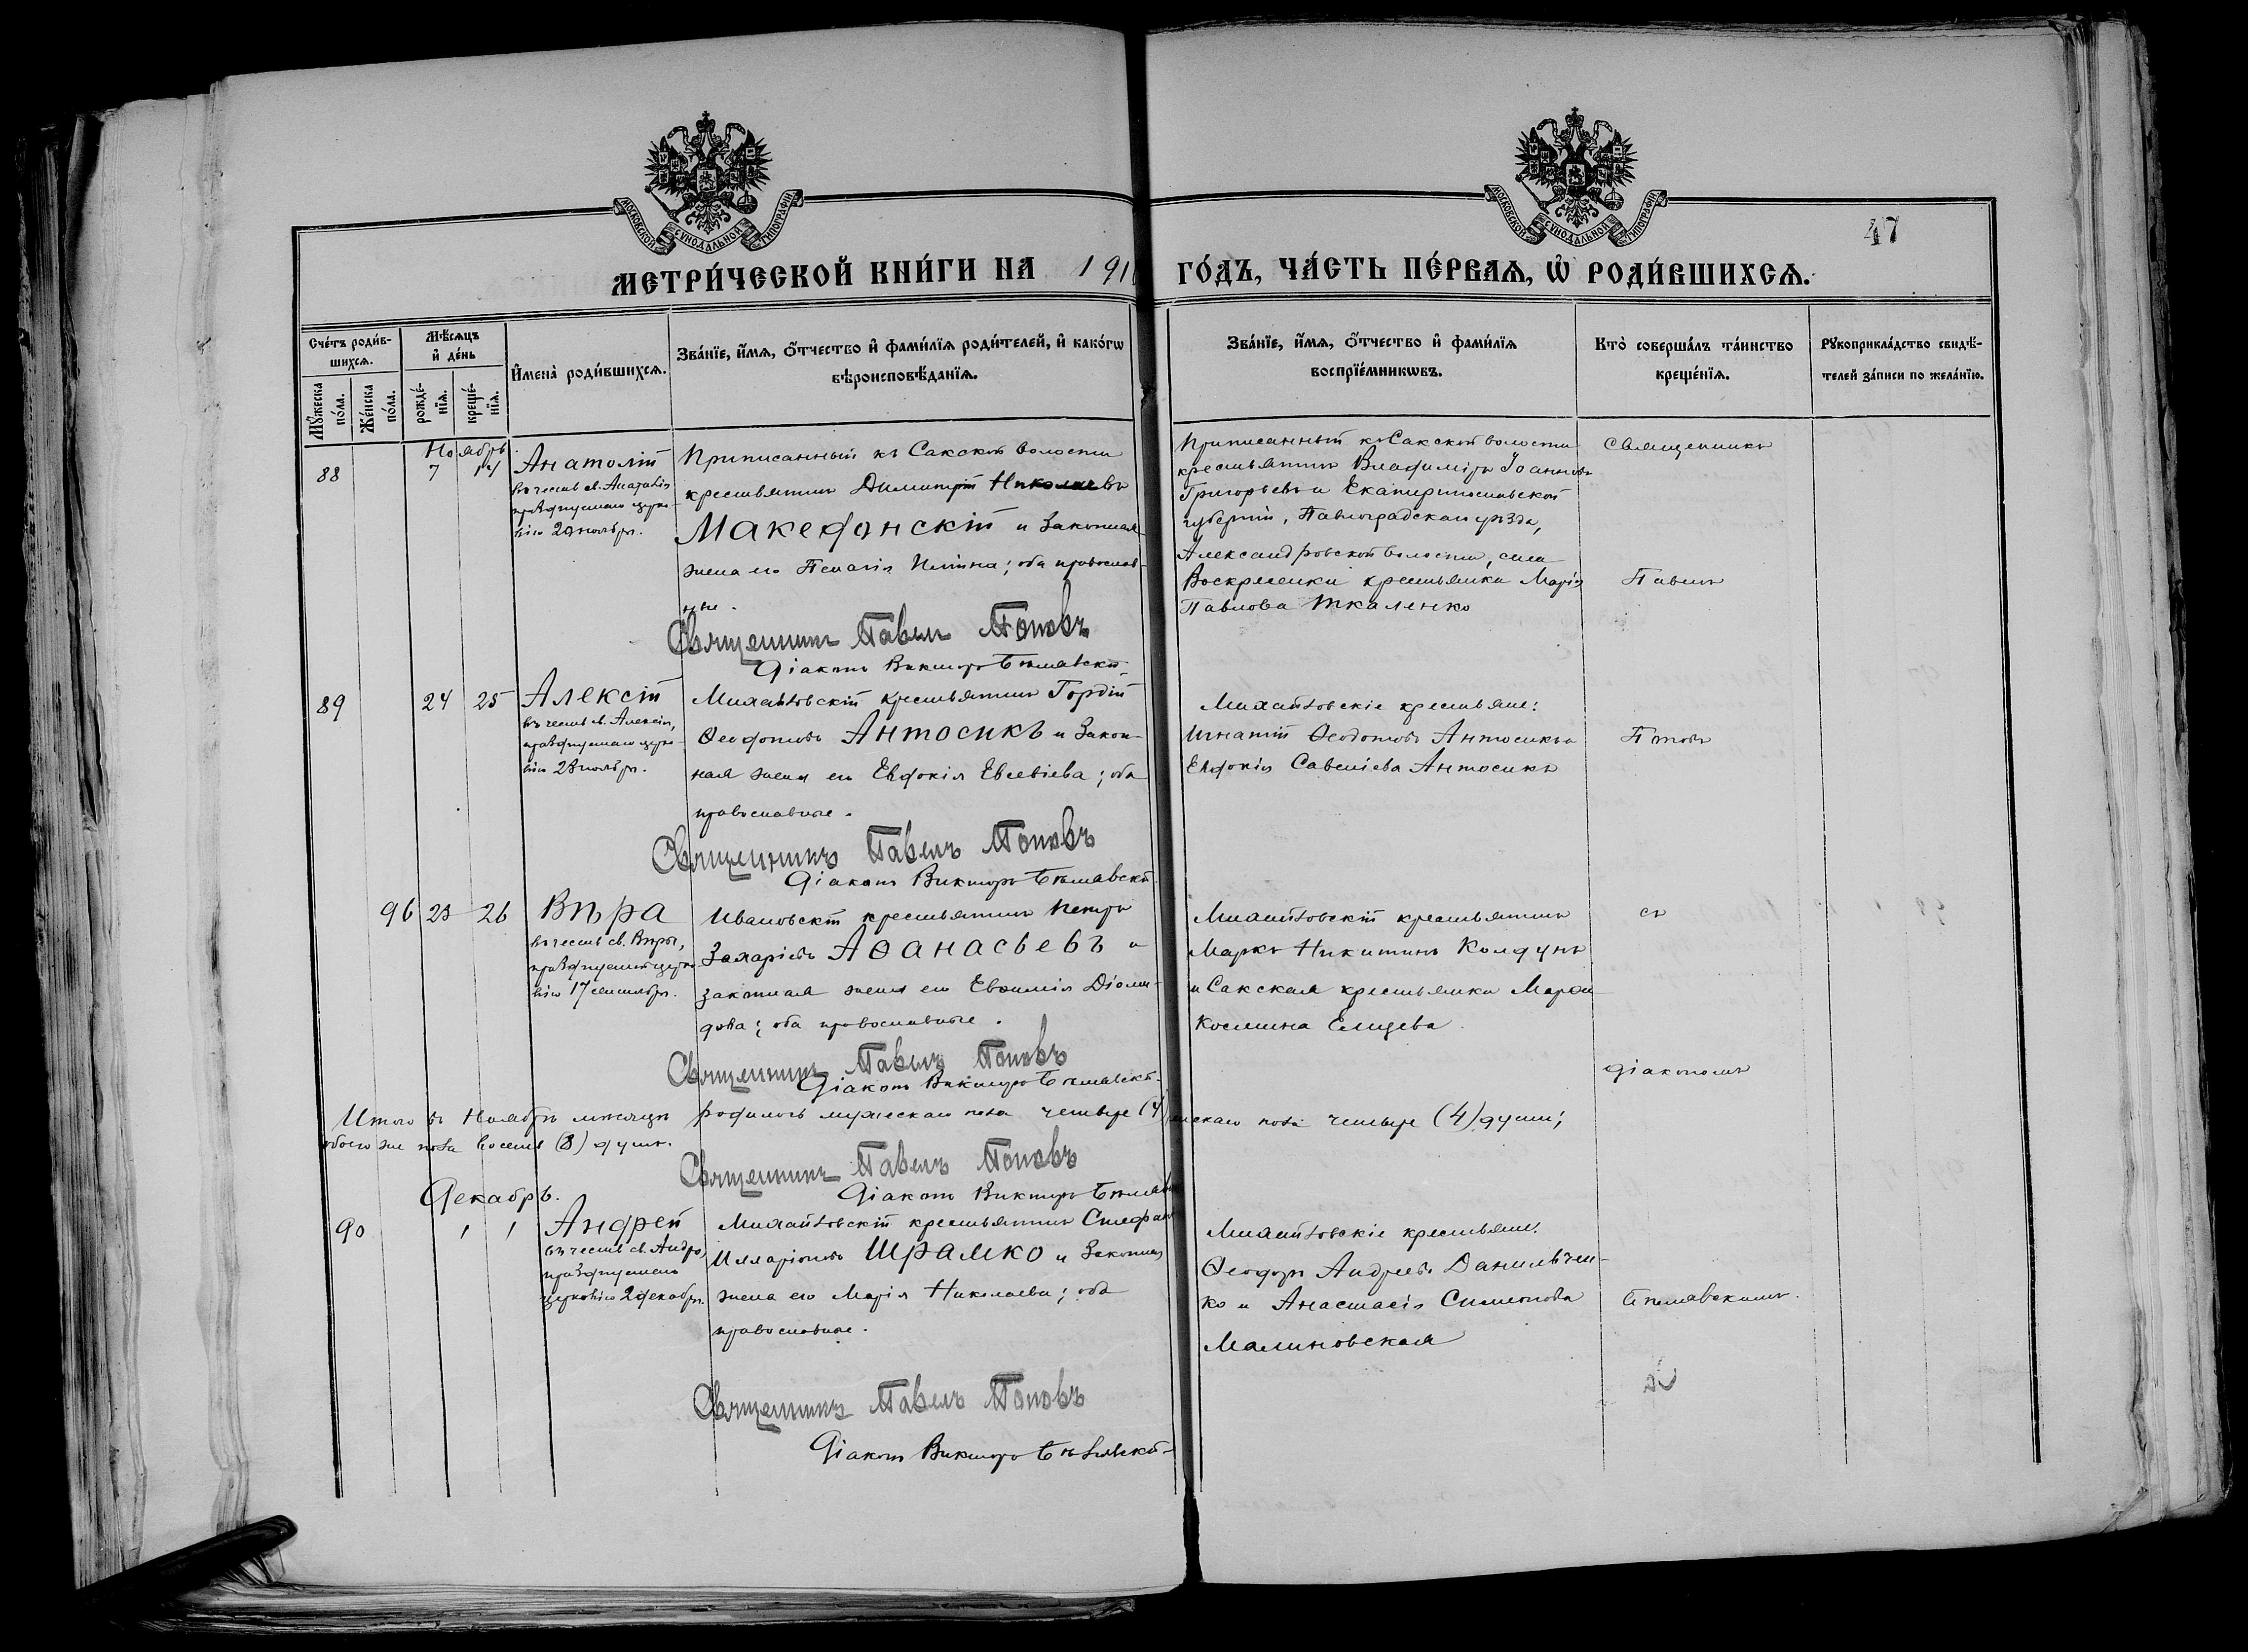 МОСКОВСКОЙ СѴНОДАЛЬНОЙ ТИПОГРАФІИ
МОСКОВСКОЙ СѴНОДАЛЬНОЙ ТИПОГРАФІИ
47
МЕТРИ́ЧЕСКОЙ КНИ́ГИ НА 191
ГО́ДЪ, ЧА́СТЬ ПЕ́РВАѦ, Ѡ҆ РОДИ́ВШИХСѦ.
Сче́тъ роди́в-
шихсѧ.
Мѣ́сѧцъ
и҆ де́нь
И҆мена̀ роди́вшихсѧ.
Зва́нїе, и҆́мѧ, ѻ҆́тчество и҆ фами́лїѧ роди́телей, и҆ како́гѡ
вѣроисповѣ́данїѧ.
Зва́нїе, и҆́мѧ, ѻ҆́тчество и҆ фами́лїѧ
воспрїе́мникѡвъ.
Кто̀ соверша́лъ та́инство
креще́нїѧ.
Рꙋкоприкла́дство свидѣ́-
телей за́писи по жела́нїю.
Мꙋ́жеска
по́ла.
Же́нска
по́ла.
рожде́-
нїѧ.
креще́-
нїѧ.
Ноябрь.
88 7 14 Анатолій
въ честь св. Анатолія
празднуемаго церко-
вію 20 ноября.
Приписанный къ Сакской волости
крестьянинъ Димитрій Николаевъ
Македонскій и законная
жена его Пелагія Ильина; оба православ-
ные.
Священникъ Павелъ Поповъ
Діаконъ Викторъ Бѣлявскій
Приписанный къ Сакской волости
крестьянинъ Владиміръ Іоанновъ
Григорьевъ и Екатеринославской
губерніи, Павлоградскаго уѣзда,
Александровской волости, села
Воскресенки крестьянка Марія
Павлова Ткаленко
Священникъ
Павелъ
89 24 25 Алексій
въ честь св. Алексія,
празднуемаго церко-
вію 23 ноября.
Михайловскій крестьянинъ Гордій
Ѳеодотовъ Антосикъ и закон-
ная жена его Евдокія Евсевіева; оба
православные.
Священникъ Павелъ Поповъ
Діаконъ Викторъ Бѣлявскій
Михайловскіе крестьяне:
Игнатій Ѳеодотовъ Антосикъ и
Евдокія Савеліева Антосикъ
Поповъ
96 23 26 Вѣра
въ честь св. Вѣры,
празднуемой церко-
вію 17 сентября.
Ивановскій крестьянинъ Петръ
Захаріевъ Аѳанасьевъ и
законная жена его Евѳимія Діоми-
дова; оба православные.
Священникъ Павелъ Поповъ
Діаконъ Викторъ Бѣлявскій
Михайловскій крестьянинъ
Маркъ Никитинъ Колдунъ
и Сакская крестьянка Марѳа
Космина Елцева
съ
діакономъ
Итого въ Ноябрѣ мѣсяцѣ родилось мужескаго пола четыре (4) женскаго пола четыре (4) души;
обоего же пола восемь (8) душъ.
Священникъ Павелъ Поповъ
Діаконъ Викторъ Бѣляв
Декабрь.
90 1 1 Андрей
въ честь св. Андрея,
празднуемаго
церковію 2 декабря.
Михайловскій крестьянинъ Стефанъ
Илларіоновъ Шрамко и законная
жена его Марія Николаева; оба
православные.
Священникъ Павелъ Поповъ
Діаконъ Викторъ Бѣлявскій
Михайловскіе крестьяне:
Ѳеодоръ Андреевъ Данильчен-
ко и Анастасія Симонова
Малиновская
Бѣлявскимъ.